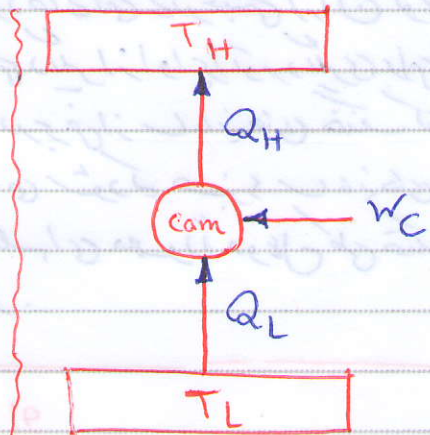 T_H
Q_H
com
W_C
Q_L
T_L